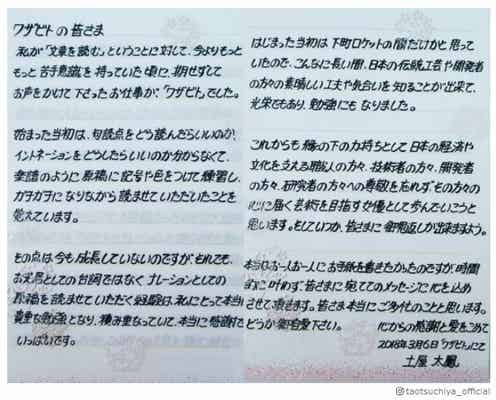 ワザビトの皆さま
私が「文章を読む」ということに対して、今よりもっと
もっと苦手意識を持っていた頃に、期せずして
お声をかけて下さったお仕事が、「ワザビト」でした。
始まった当初は、句読点をどう読んだらいいのか、
イントネーションをどうしたらいいのか分からなくて、
楽譜のように原稿に記号や色をつけて練習し、
ガチガチになりながら読ませていただいたことを
覚えています。
その点は今も成長していないのですが、それでも、
お芝居としての台詞ではなく、ナレーションとしての
原稿を読ませていただく経験は、私にとって本当に
貴重な勉強となり、積み重なっていて、本当に感謝で
いっぱいです。
はじまった当初は下町ロケットの間だけかと思って
いたので、こんなに長い間、日本の伝統工芸や開発者
の方々の素晴しい工夫や気合いを知ることが出来て、
光栄でもあり、勉強にもなりました。
これからも縁の下の力持ちとして日本の経済や
文化を支える職人の方々、技術者の方々、開発者
の方々、研究者の方々への尊敬を忘れず、その方々の
心に届く芸術を目指す女優として歩んでいこうと
思います。そしていつか、皆さまに御恩返しが出来ますよう。
本当はお一人お一人にお手紙を書きたかったのですが、時間
的に叶わず、皆さまに宛ててのメッセージに心を込め
させて頂きます。皆さま本当にご多忙のことと思います。
どうか御自愛下さい。
心からの感謝と愛をこめて
2018年3月6日「ワザビト」にて
土屋 太鳳
taotsuchiya_official